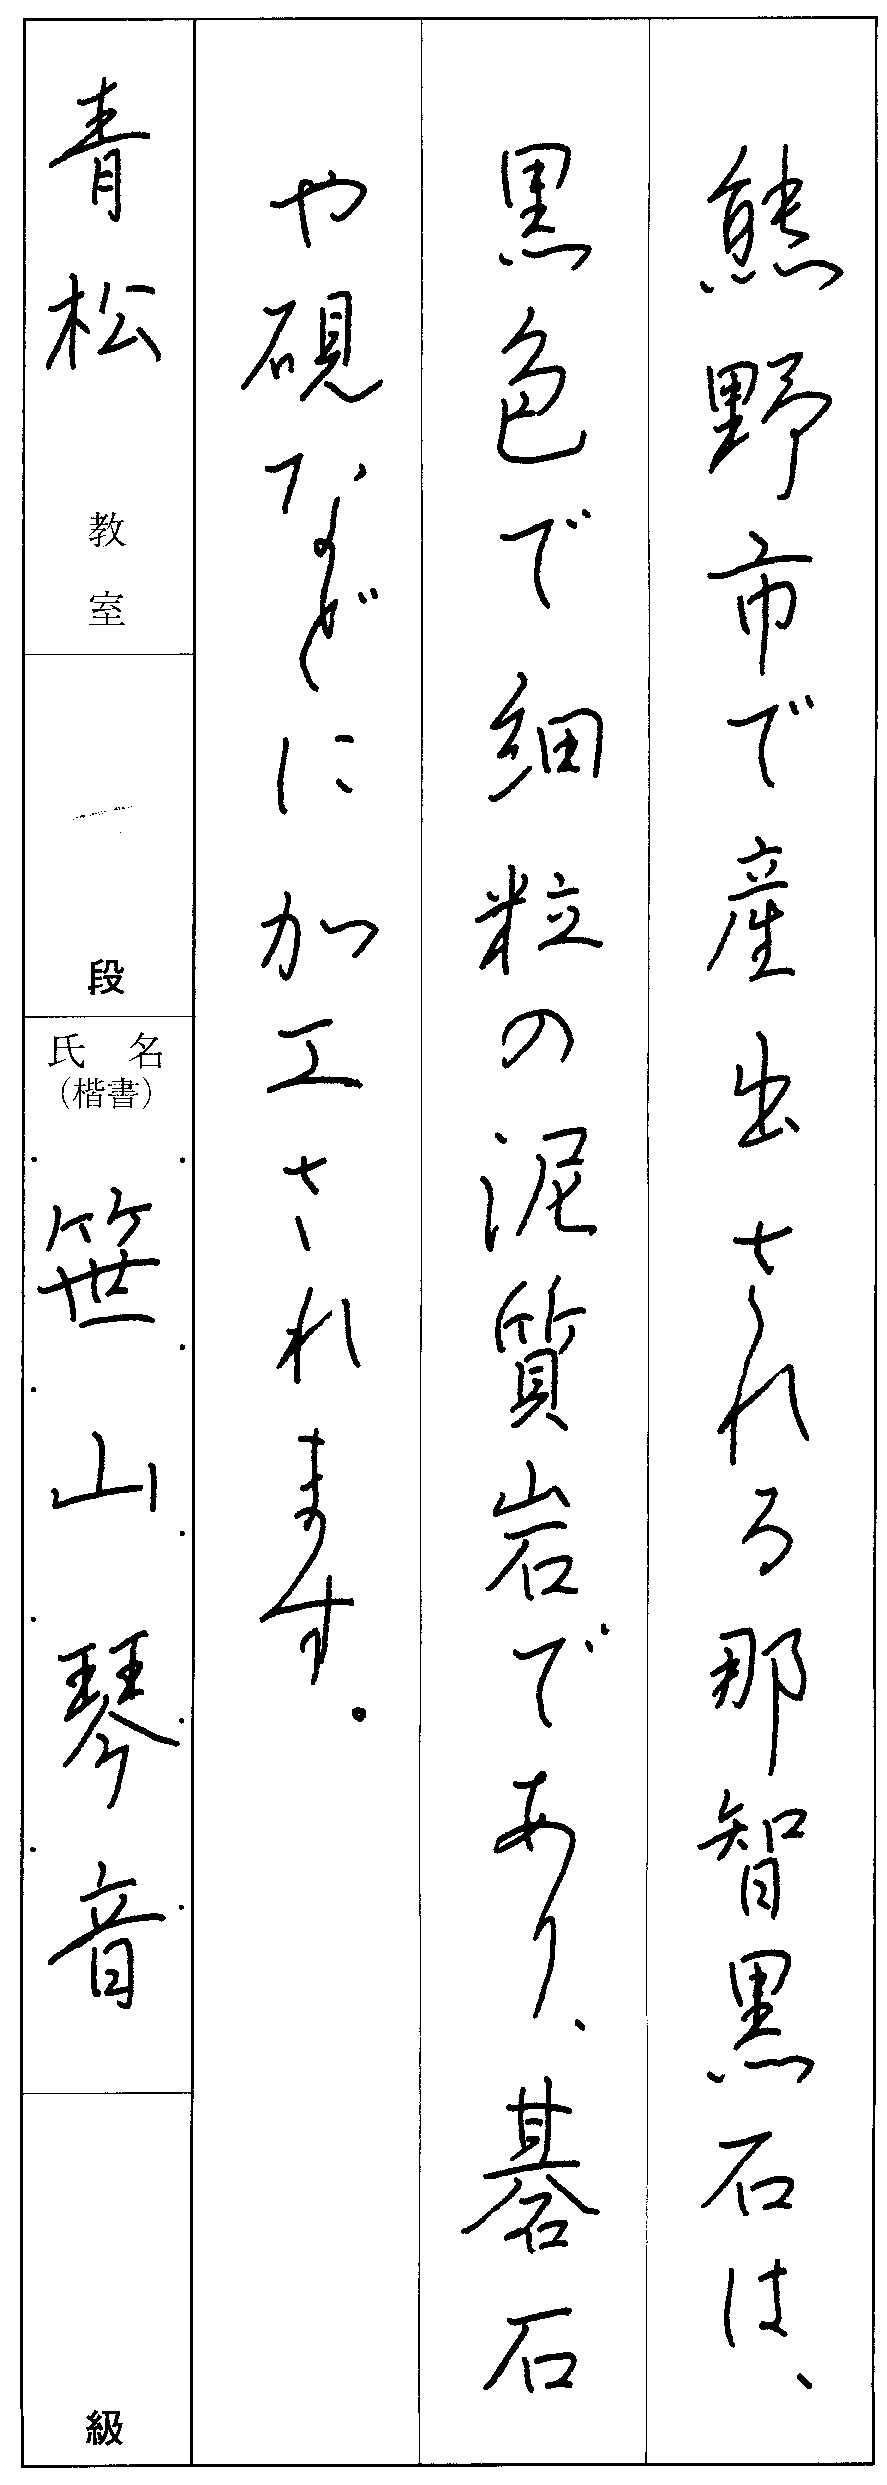 熊野市で産出される那智黒石は、
黒色で細粒の泥質岩であり、碁石
や硯などに加工されます。
青松教室
一段
氏名
(楷書)
笹山琴音
級